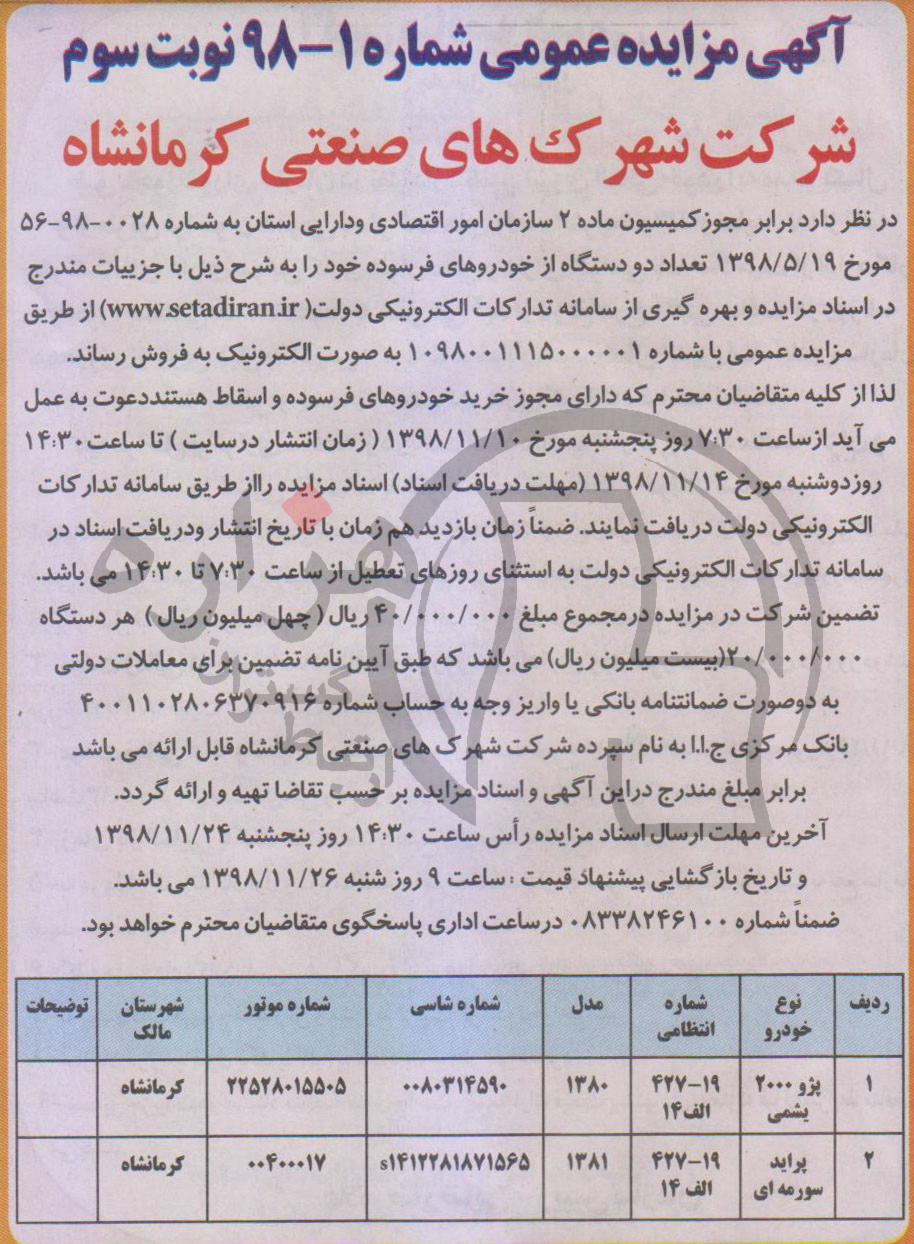 آگهی مزایده عمومی شماره ۱-۹۸ نوبت سوم
شرکت شهرک های صنعتی کرمانشاه
در نظر دارد برابر مجوز کمیسیون ماده ۲ سازمان امور اقتصادی ودارایی استان به شماره ۰۰۲۸-۹۸-۵۶
مورخ ۱۳۹۸/۵/۱۹ تعداد دو دستگاه از خودروهای فرسوده خود را به شرح ذیل با جزییات مندرج
در اسناد مزایده و بهره گیری از سامانه تدارکات الکترونیکی دولت( www.setadiran.ir) از طریق
مزایده عمومی با شماره ۱۰۹۸۰۰۱۱۱۵۰۰۰۰۰۱ به صورت الکترونیک به فروش رساند.
لذا از کلیه متقاضیان محترم که دارای مجوز خرید خودروهای فرسوده و اسقاط هستنددعوت به عمل
می آید ازساعت ۷:۳۰ روز پنجشنبه مورخ ۱۳۹۸/۱۱/۱۰ ( زمان انتشار درسایت ) تا ساعت۱۴:۳۰
روزدوشنبه مورخ ۱۳۹۸/۱۱/۱۴ (مهلت دریافت اسناد) اسناد مزایده رااز طریق سامانه تدارکات
الکترونیکی دولت دریافت نمایند. ضمناً زمان بازدید هم زمان با تاریخ انتشار ودریافت اسناد در
سامانه تدارکات الکترونیکی دولت به استثنای روزهای تعطیل از ساعت ۷:۳۰ تا ۱۴:۳۰ می باشد.
تضمین شرکت در مزایده درمجموع مبلغ ۴۰/۰۰۰/۰۰۰ ریال ( چهل میلیون ریال ) هر دستگاه
۲۰/۰۰۰/۰۰۰(بیست میلیون ریال) می باشد که طبق آیین نامه تضمین برای معاملات دولتی
به دوصورت ضمانتنامه بانکی یا واریز وجه به حساب شماره ۴۰۰۱۱۰۲۸۰۶۳۷۰۹۱۶
بانک مرکزی ج.ا.ا به نام سپرده شرکت شهرک های صنعتی کرمانشاه قابل ارائه می باشد
برابر مبلغ مندرج دراین آگهی و اسناد مزایده بر حسب تقاضا تهیه و ارائه گردد.
آخرین مهلت ارسال اسناد مزایده رأس ساعت ۱۴:۳۰ روز پنجشنبه ۱۳۹۸/۱۱/۲۴
و تاریخ بازگشایی پیشنهاد قیمت : ساعت ۹ روز شنبه ۱۳۹۸/۱۱/۲۶ می باشد.
ضمناً شماره ۰۸۳۳۸۲۴۶۱۰۰ درساعت اداری پاسخگوی متقاضیان محترم خواهد بود.
ردیف نوع خودرو شماره انتظامی مدل شماره شاسی شماره موتور شهرستان مالک توضیحات
۱ پژو ۲۰۰۰ یشمی ۱۹-۴۲۷ الف۱۴ ۱۳۸۰ ۰۰۸۰۳۱۴۵۹۰ ۲۲۵۲۸۰۱۵۵۰۵ کرمانشاه
۲ پراید سورمه ای ۱۹-۴۲۷ الف ۱۴ ۱۳۸۱ s۱۴۱۲۲۸۱۸۷۱۵۶۵ ۰۰۴۰۰۰۱۷ کرمانشاه